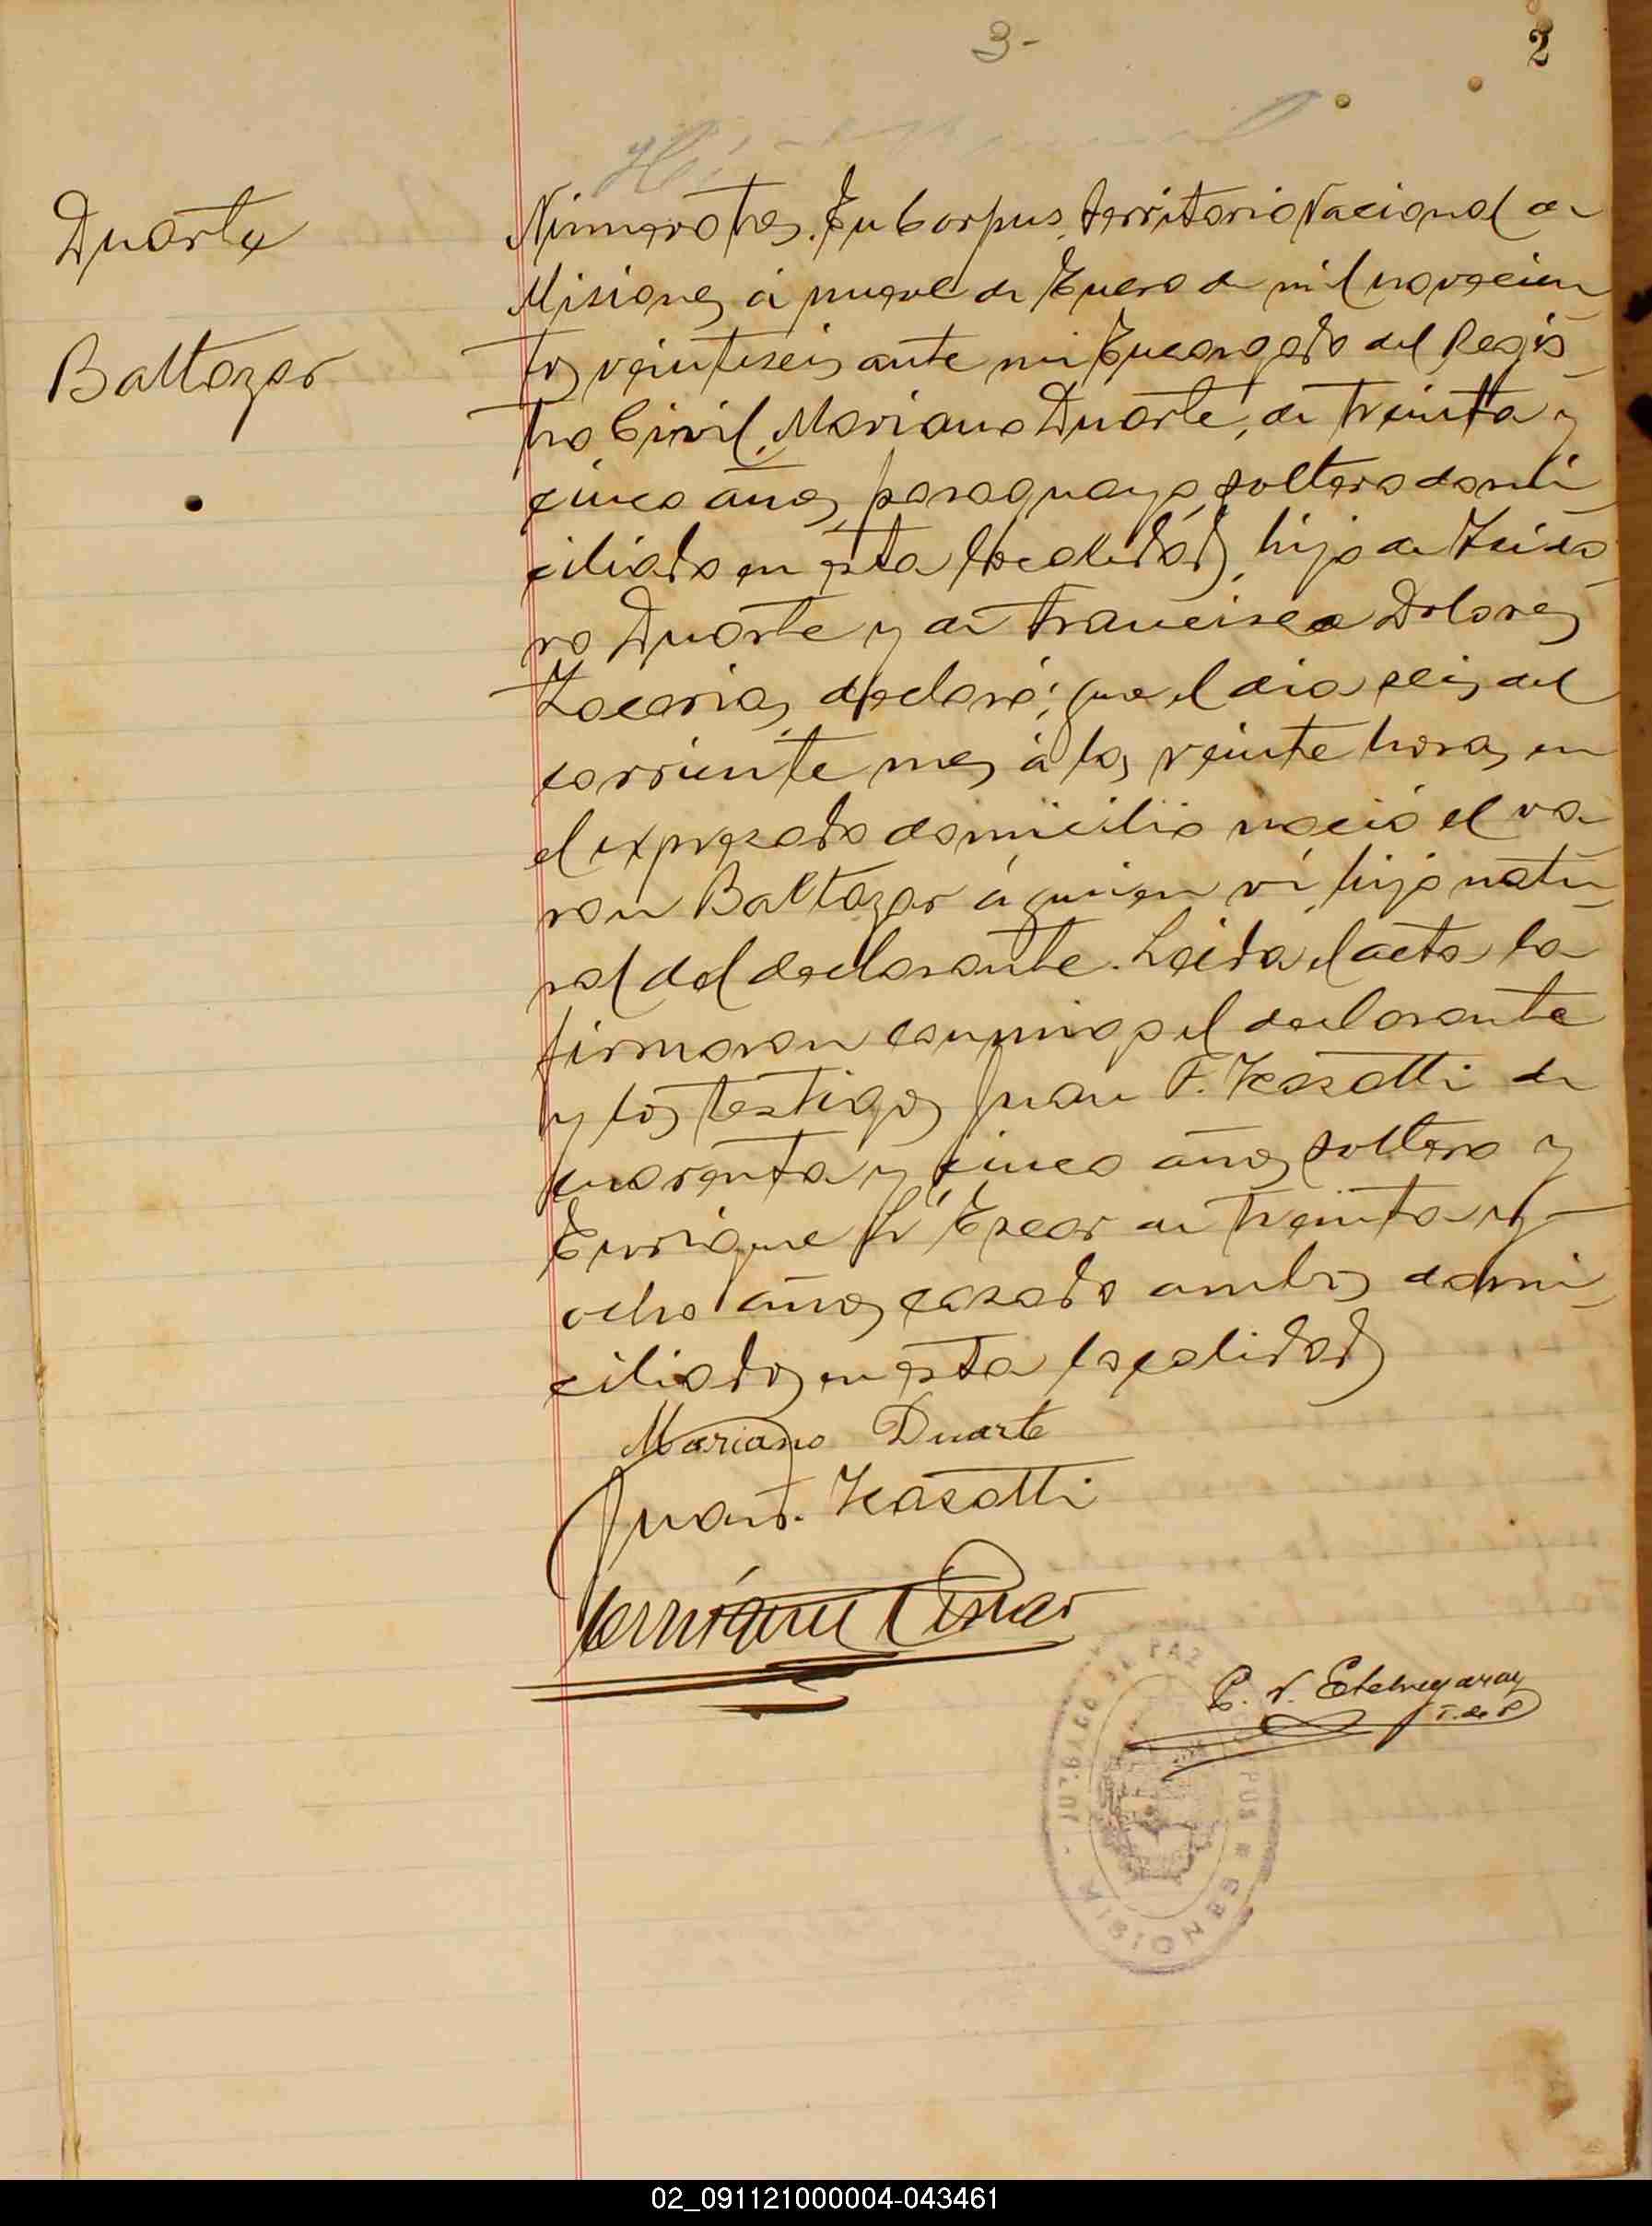 3-
2
Duarte
Baltazar
Numero tres. En Corpus, territorio Nacional de
Misiones, á nueve de Enero de mil novecien
tos veintiseis, ante mi Encargado del Regis
tro Civil, Mariano Duarte, de treinta y
cinco años, paraguayo, soltero domi
ciliado en esta localidad, hijo de Isido
ro Duarte y de Francisca Dolores
Zacarias, declaró: que el dia seis del
corriente mes á las veinte horas, en
el expresado domicilio nació el va
ron Baltazar á quien ví, hijo natu
ral del declarante. Leida el acta la
firmaron conmigo el declarante
y los testigos Juan F. Kasatti de
cuarenta y cinco años, soltero y
Enrique L' Escar de treinta y
ocho años, casado ambos domi
ciliados en esta localidad
Mariano Duarte
Juan F. Kasatti
P. N. Etchegaray
J. de P.
JUZGADO DE PAZ
CORPUS
MISIONES
02_091121000004-043461